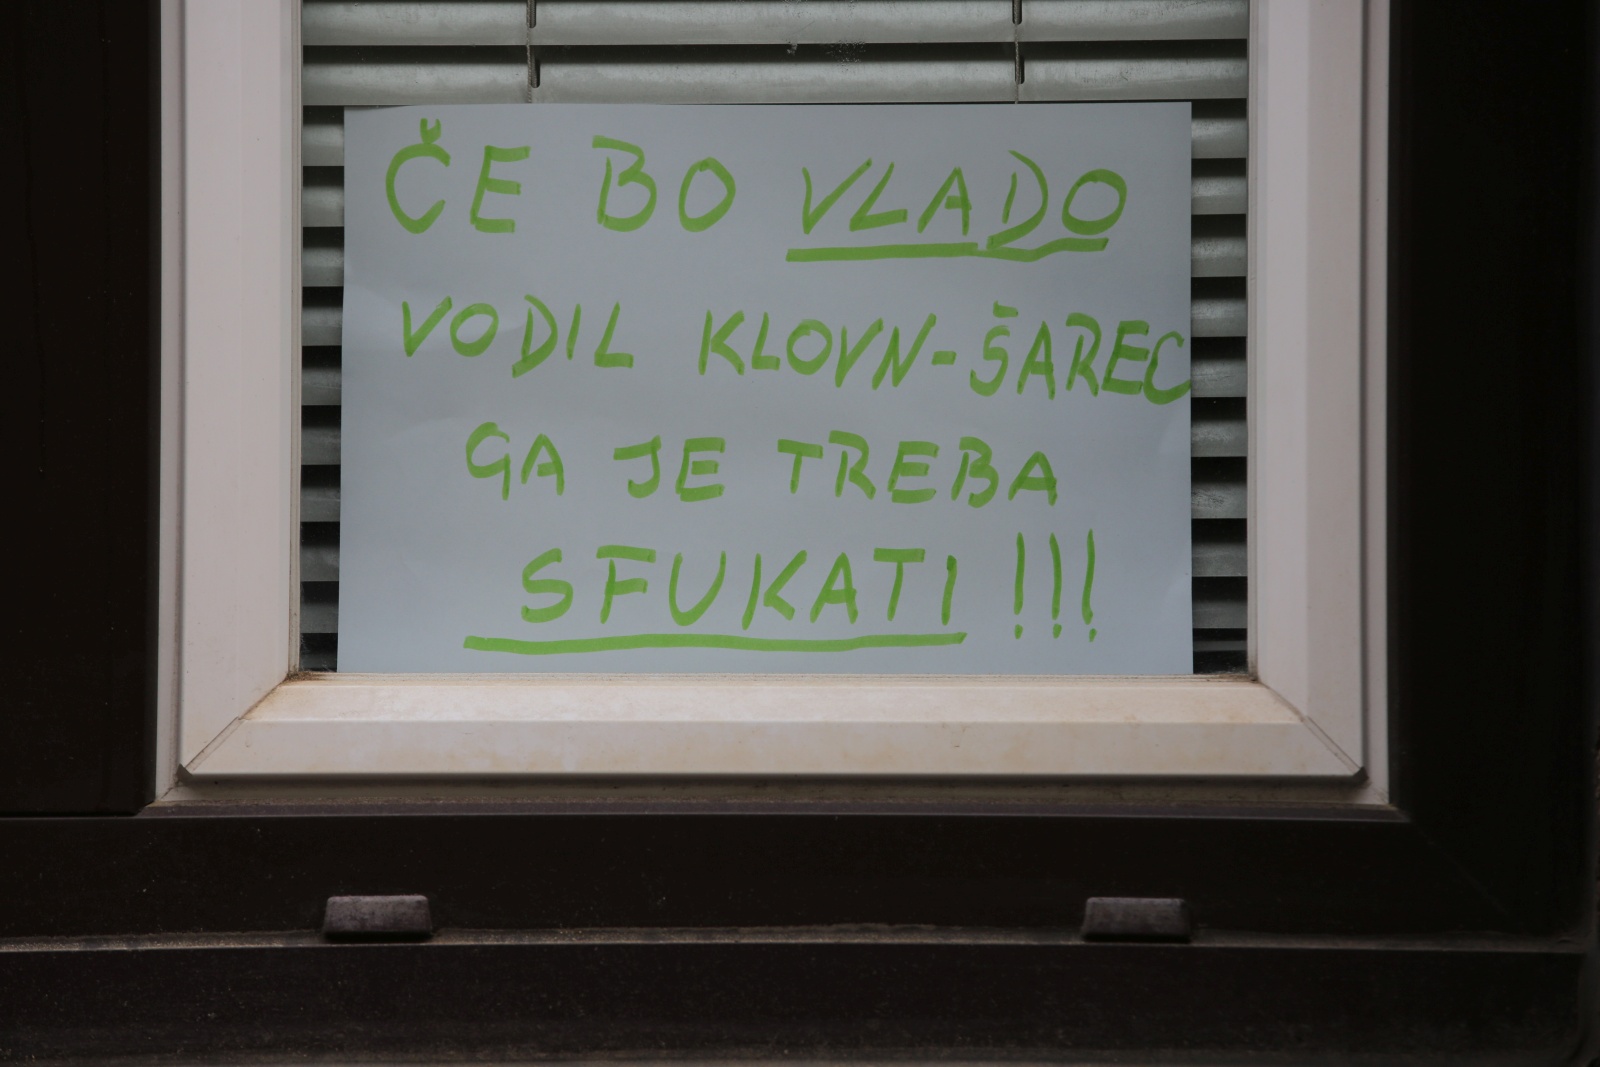 ČE BO VLADO
VODIL KLOVN-ŠAREC
GA JE TREBA
SFUKATI !!!